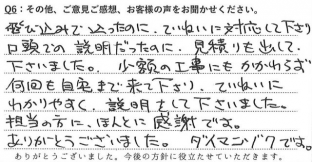 Q6：その他、ご意見ご感想、お客様の声をお聞かせください。
飛び込みで込ったのに、ていねいに対応して下さり
口頭での説明だったのに、見積りも出して
下さいました。少額の工事にもかかわらず
何回も自宅まで来て下さり、ていねいに
わかりやすく、説明をして下さいました。
担当の方に、ほんとに感謝です。
ありがとうございました。ダイマニゾクです。
ありがとうございました。今後の方針に役立たせていただきます。